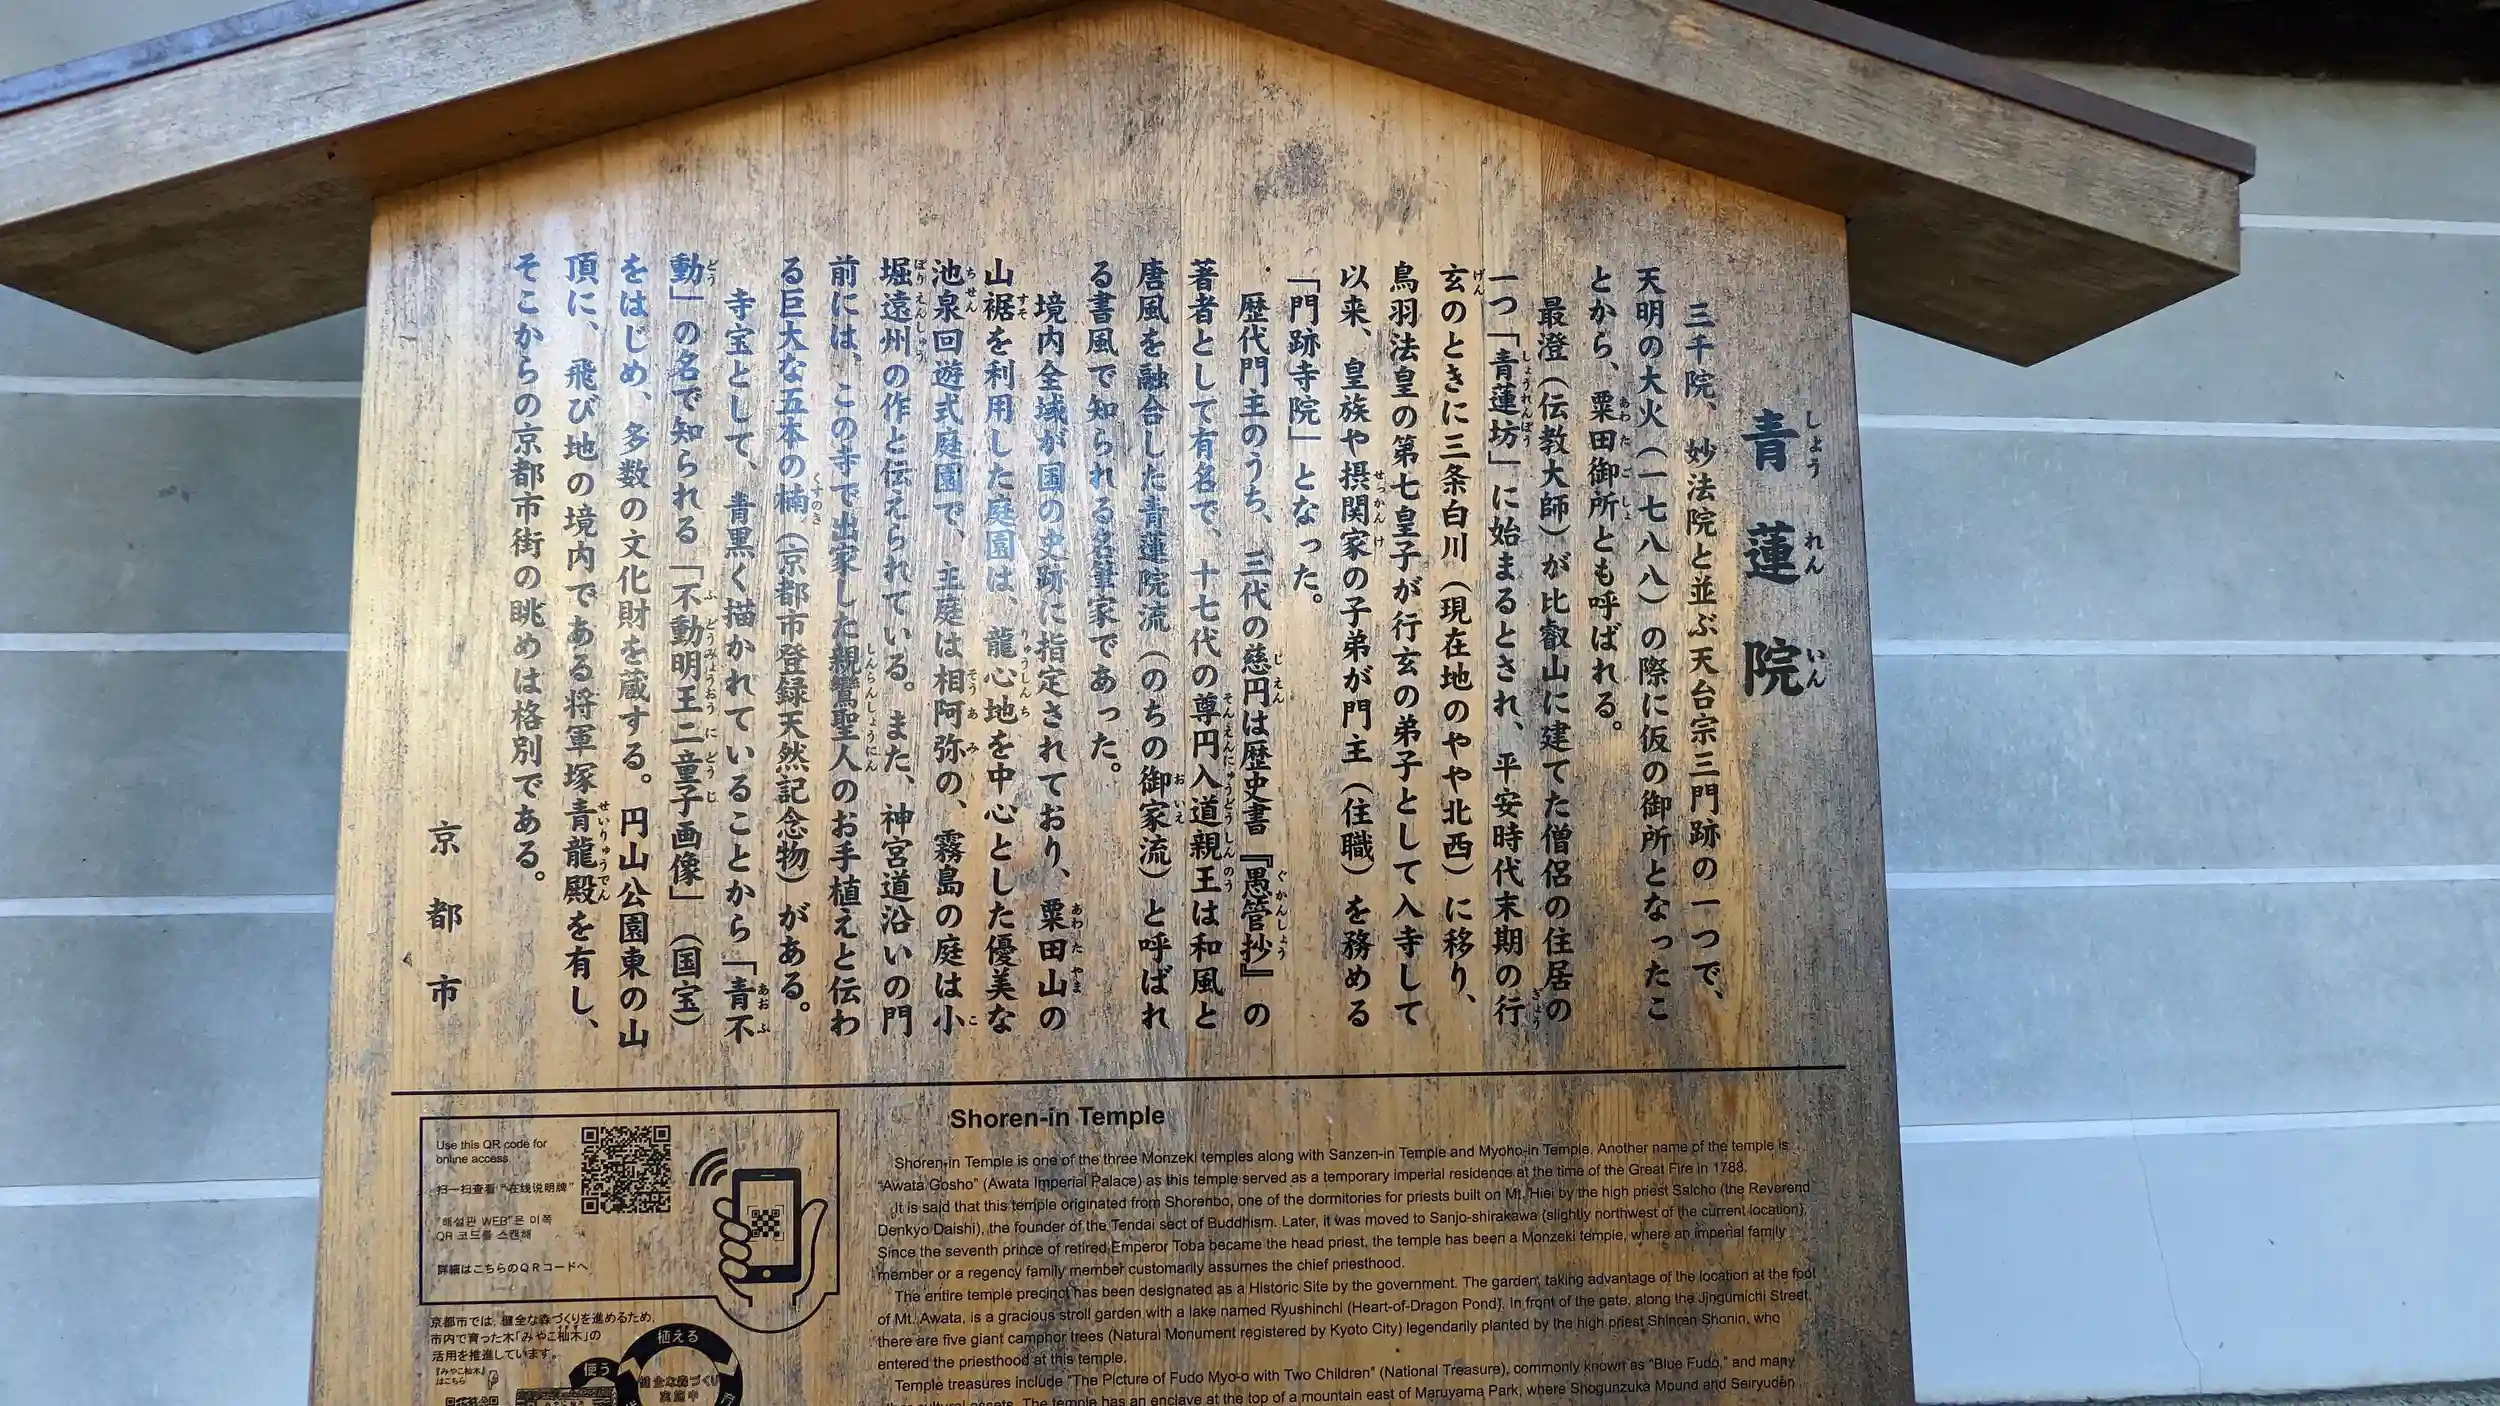 青蓮院
しょうれんいん
三千院、妙法院と並ぶ天台宗三門跡の一つで、
天明の大火（一七八八）の際に仮の御所となったこ
とから、粟田御所とも呼ばれる。
あわたごしょ
最澄（伝教大師）が比叡山に建てた僧侶の住居の
一つ「青蓮坊」に始まるとされ、平安時代末期の行
しょうれんぼう
ぎょう
玄のときに三条白川（現在地のやや北西）に移り、
げん
鳥羽法皇の第七皇子が行玄の弟子として入寺して
以来、皇族や摂関家の子弟が門主（住職）を務める
せっかんけ
「門跡寺院」となった。
歴代門主のうち、三代の慈円は歴史書『愚管抄』の
じえん
ぐかんしょう
著者として有名で、十七代の尊円入道親王は和風と
そんえんにゅうどうしんのう
唐風を融合した青蓮院流（のちの御家流）と呼ばれ
おいえ
る書風で知られる名筆家であった。
境内全域が国の史跡に指定されており、粟田山の
あわたやま
山裾を利用した庭園は、龍心地を中心とした優美な
すそ
りゅうしんち
池泉回遊式庭園で、主庭は相阿弥の、霧島の庭は小
ちせん
そうあみ
こ
堀遠州の作と伝えられている。また、神宮道沿いの門
ぼりえんしゅう
前には、この寺で出家した親鸞聖人のお手植えと伝わ
しんらんしょうにん
る巨大な五本の楠（京都市登録天然記念物）がある。
くすのき
寺宝として、青黒く描かれていることから「青不
あおふ
動」の名で知られる「不動明王二童子画像」（国宝）
どう
ふどうみょうおうにどうじ
をはじめ、多数の文化財を蔵する。円山公園東の山
頂に、飛び地の境内である将軍塚青龍殿を有し、
せいりゅうでん
そこからの京都市街の眺めは格別である。
京都市
Use this QR code for
online access.
扫一扫查看“在线说明牌”
"해설판 WEB"은 이쪽
QR 코드를 스캔해
詳細はこちらのQRコードへ
京都市では、健全な森づくりを進めるため、
市内で育った木「みやこ杣木」の
活用を推進しています。
『みやこ杣木』
はこちら
植える
使う
健全な森づくり
実施中
Shoren-in Temple
Shoren-in Temple is one of the three Monzeki temples along with Sanzen-in Temple and Myoho-in Temple. Another name of the temple is
“Awata Gosho” (Awata Imperial Palace) as this temple served as a temporary imperial residence at the time of the Great Fire in 1788.
It is said that this temple originated from Shorenbo, one of the dormitories for priests built on Mt. Hiei by the high priest Saicho (the Reverend
Denkyo Daishi), the founder of the Tendai sect of Buddhism. Later, it was moved to Sanjo-shirakawa (slightly northwest of the current location).
Since the seventh prince of retired Emperor Toba became the head priest, the temple has been a Monzeki temple, where an imperial family
member or a regency family member customarily assumes the chief priesthood.
The entire temple precinct has been designated as a Historic Site by the government. The garden, taking advantage of the location at the foot
of Mt. Awata, is a gracious stroll garden with a lake named Ryushinchi (Heart-of-Dragon Pond). In front of the gate, along the Jingumichi Street,
there are five giant camphor trees (Natural Monument registered by Kyoto City) legendarily planted by the high priest Shinran Shonin, who
entered the priesthood at this temple.
Temple treasures include “The Picture of Fudo Myo-o with Two Children” (National Treasure), commonly known as “Blue Fudo,” and many
cultural assets. The temple has an enclave at the top of a mountain east of Maruyama Park, where Shogunzuka Mound and Seiryuden